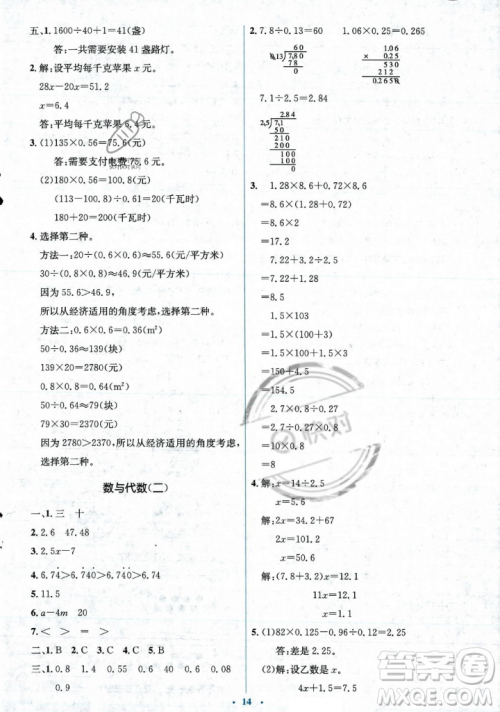 五、1. 1600÷40+1=41(盏)
答:一共需要安装41盏路灯。
2. 解:设平均每千克苹果x元。
28x-20x=51.2
x=6.4
答:平均每千克苹果6.4元。
3. (1)135×0.56=75.6(元)
答:需要支付电费75.6元。
(2)180×0.56=100.8(元)
(113-100.8)÷0.61=20(千瓦时)
180+20=200(千瓦时)
4. 选择第二种。
方法一:20÷0.36≈55.6(元/平方米)
30÷(0.8×0.8)≈46.9(元/平方米)
因为55.6>46.9,
所以从经济适用的角度考虑,选择第二种。
方法二:0.6×0.6=0.36(m²)
50÷0.36≈139(块)
139×20=2780(元)
0.8×0.8=0.64(m²)
50÷0.64≈79(块)
79×30=2370(元)
因为2780>2370,所以从经济适用的角度考虑,选择第二种。
数与代数(二)
一、1. 三 十
2. 2.6 47.48
3. 2.5x-7
5. 11.5
6. a-4m 20
7. < > < =
二、1. B 2. C 3. A 4. B 5. C
三、1. 0.8 1.4 0.4 0.6 0.08
0.9
2. 7.8÷0.13=60 1.06×0.25=0.265
60
7.80
78
0
1.06
× 0.25
530
212
0.2650
7.1÷2.5=2.84
2.84
2.5 7.1
50
210
200
100
100
0
3. 1.28×8.6+0.72×8.6
=8.6×(1.28+0.72)
=8.6×2
=17.2
7.22+1.28÷0.8
=7.22+1.6
=8.82
1.5×103
=1.5×(100+3)
=1.5×100+1.5×3
=150+4.5
=154.5
3.2×0.25÷0.1
=0.8÷0.1
=8
1.2÷(0.3×0.4)
=1.2÷0.12
=10
4. 解:x=14÷2.5
x=5.6
解:2x=7.5+12.5
2x=20
x=10
解:(7.8+3.2)x=12.1
11x=12.1
x=1.1
5. (1)82×0.125-0.96÷0.12=2.25
答:差是2.25。
(2)解:设乙数为x。
4x+1.5=7.5
14